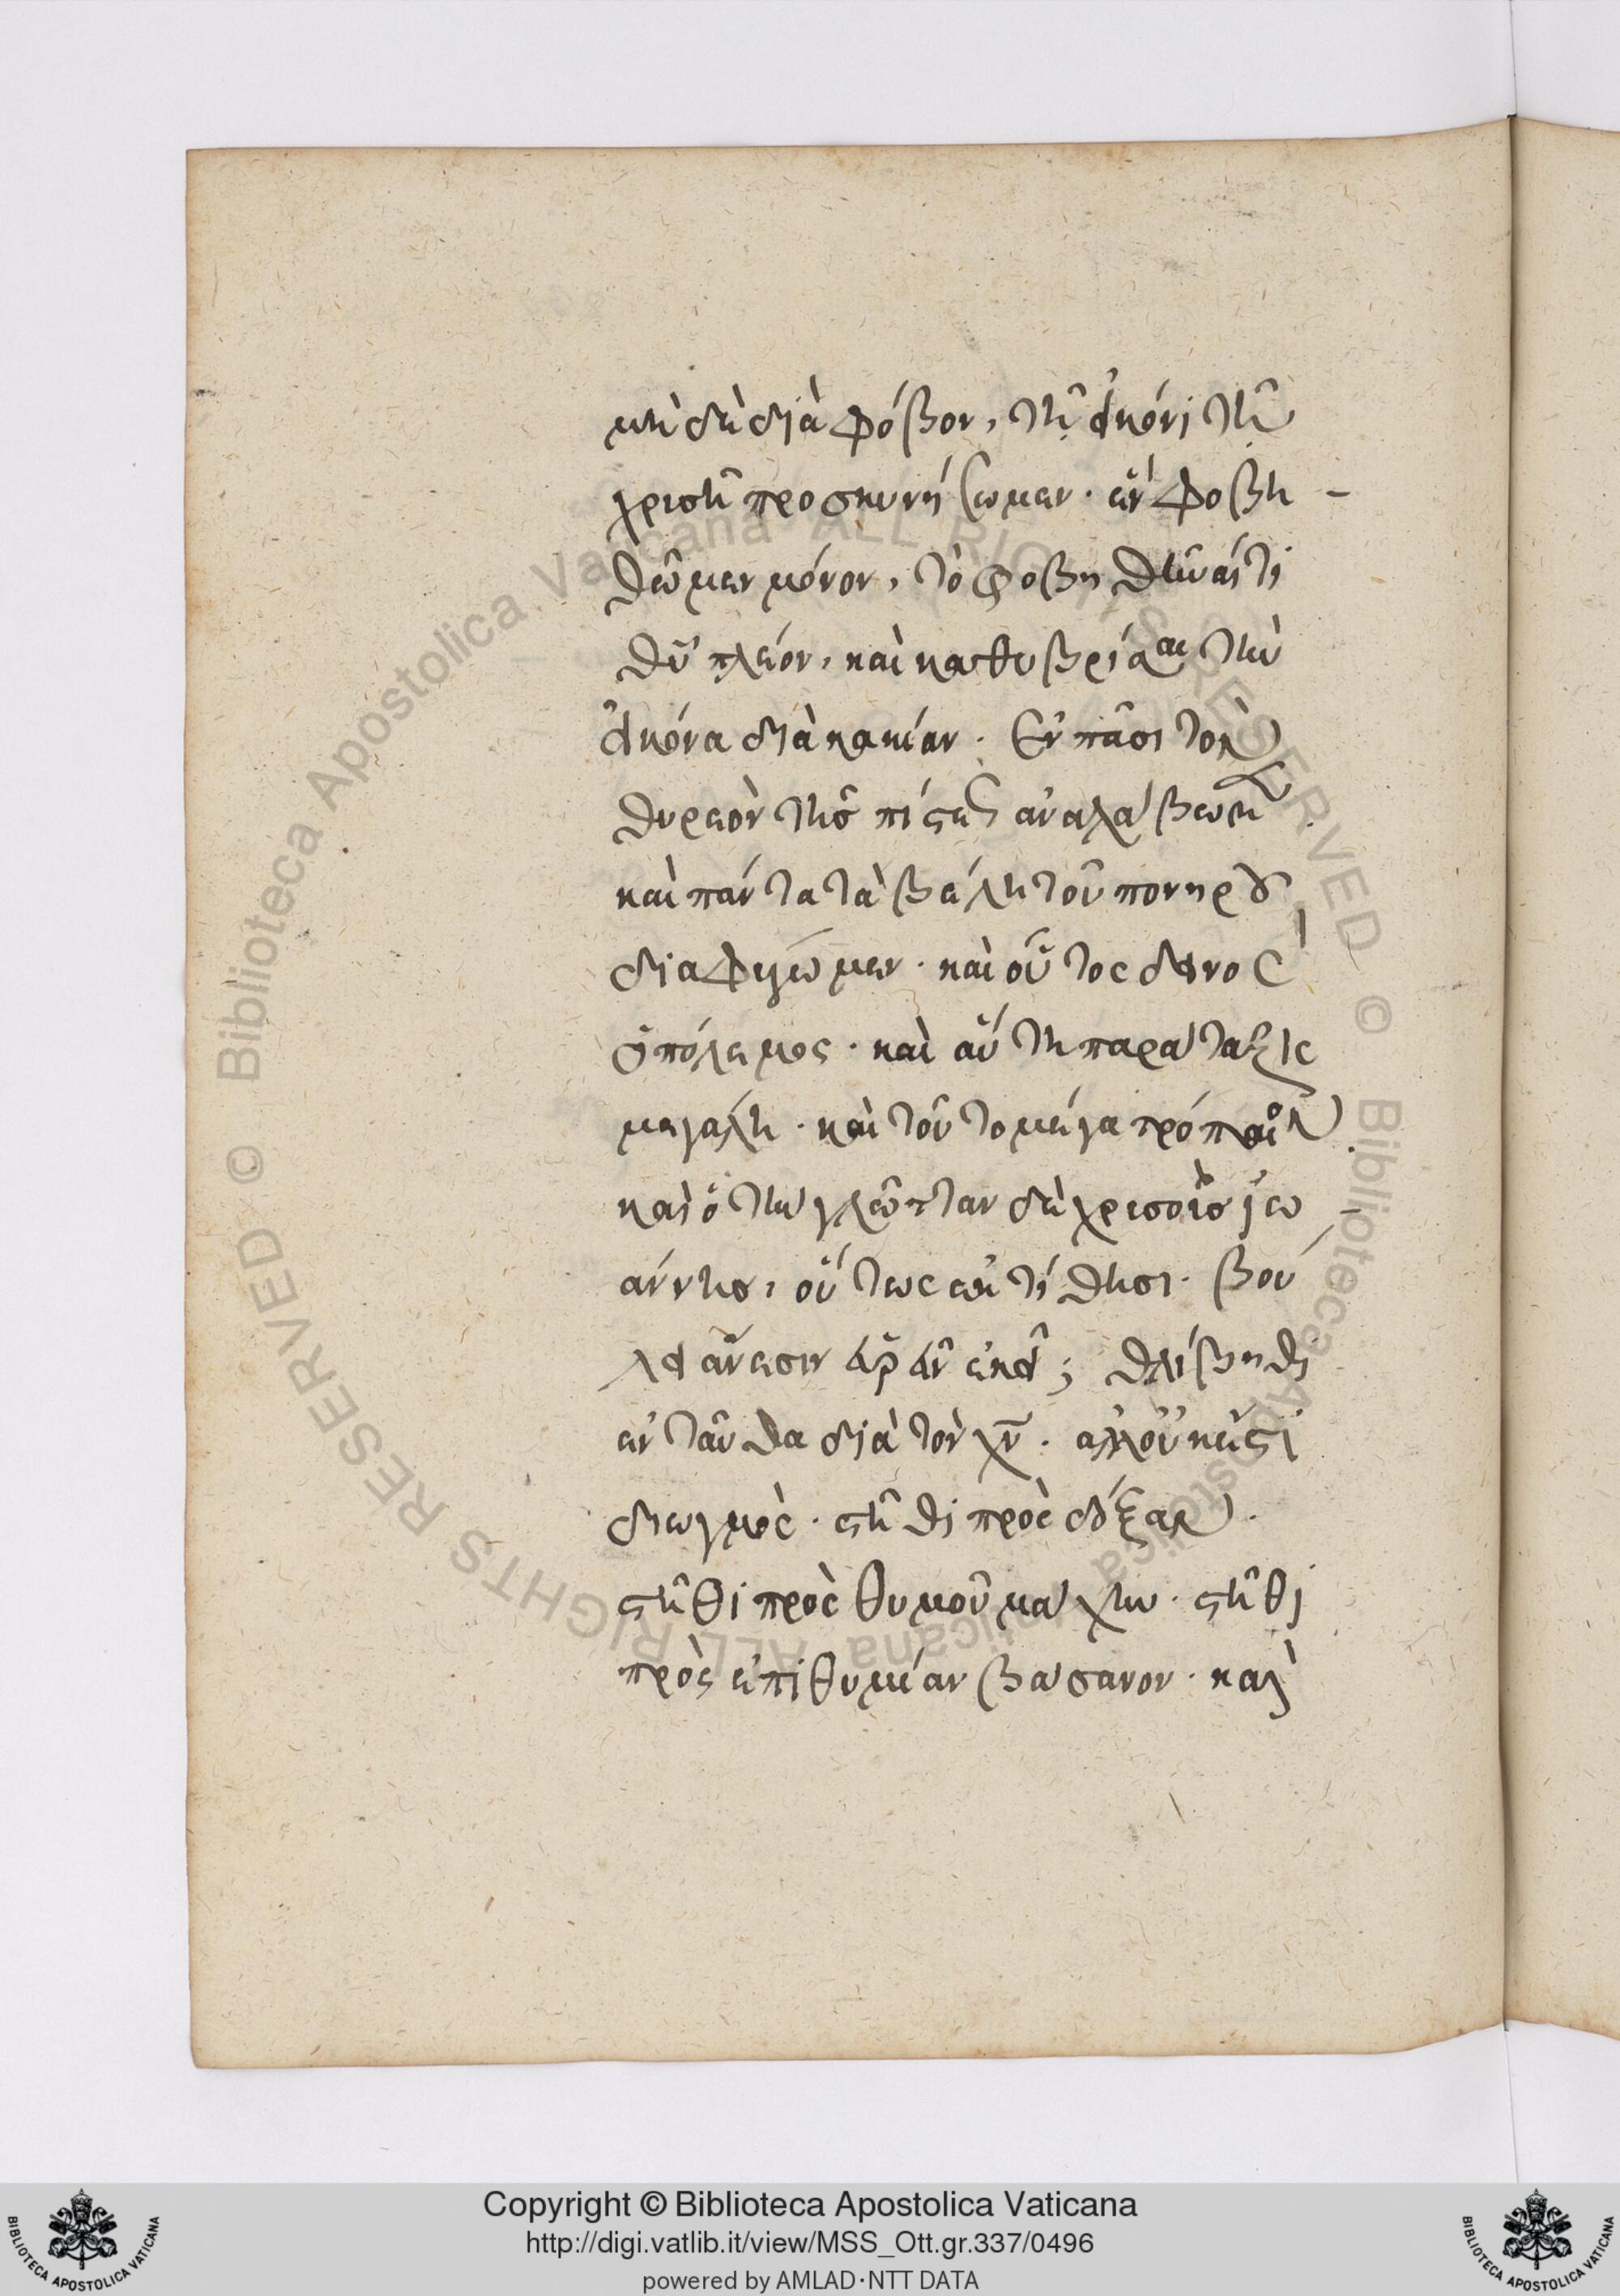 μὴ δὴ διὰ φόβον, τῆ εἰκόνι τῆ
χριστῆ προσκυνήσωμεν· ἓν φοβη-
θῶμεν μόνον, τὸ φοβηθῆναί τι
θῦ πλέον, καὶ καθυβρίσαι τὴν
εἰκόνα διὰ κακίαν. Ἐν πᾶσι τὸν
θυρεὸν τῆς πίστεως ἀναλάβωμεν
καὶ πάντα τὰ βέλη τοῦ πονηροῦ
διαφύγωμεν· καὶ οὗτος δεινὸς
ὁ πόλεμος· καὶ αὕτη παράταξις
μεγάλη· καὶ τοῦτο μέγα τρόπαιον.
καὶ ὁ τὴν γλῶτταν δὲ χρυσοῖς ἰω
άννης, οὕτως ἐκτίθησι· βού
λει ἄνεσιν εὑρεῖν ἐκεῖ; θλίβηθι
ἐνταῦθα διὰ τὸν χν̅. ἀλλ' οὐκ ἔστι
διωγμός· στῆθι πρὸς δόξαν.
στῆθι πρὸς θυμοῦ μάχην· στῆθι
πρὸς ἐπιθυμίαν βάσανον· καὶ
Copyright © Biblioteca Apostolica Vaticana
http://digi.vatlib.it/view/MSS_Ott.gr.337/0496
powered by AMLAD·NTT DATA
BIBLIOTECA APOSTOLICA VATICANA
BIBLIOTECA APOSTOLICA VATICANA
© Biblioteca Apostolica Vaticana ALL RIGHTS RESERVED © Biblioteca Apostolica Vaticana ALL RIGHTS RESERVED